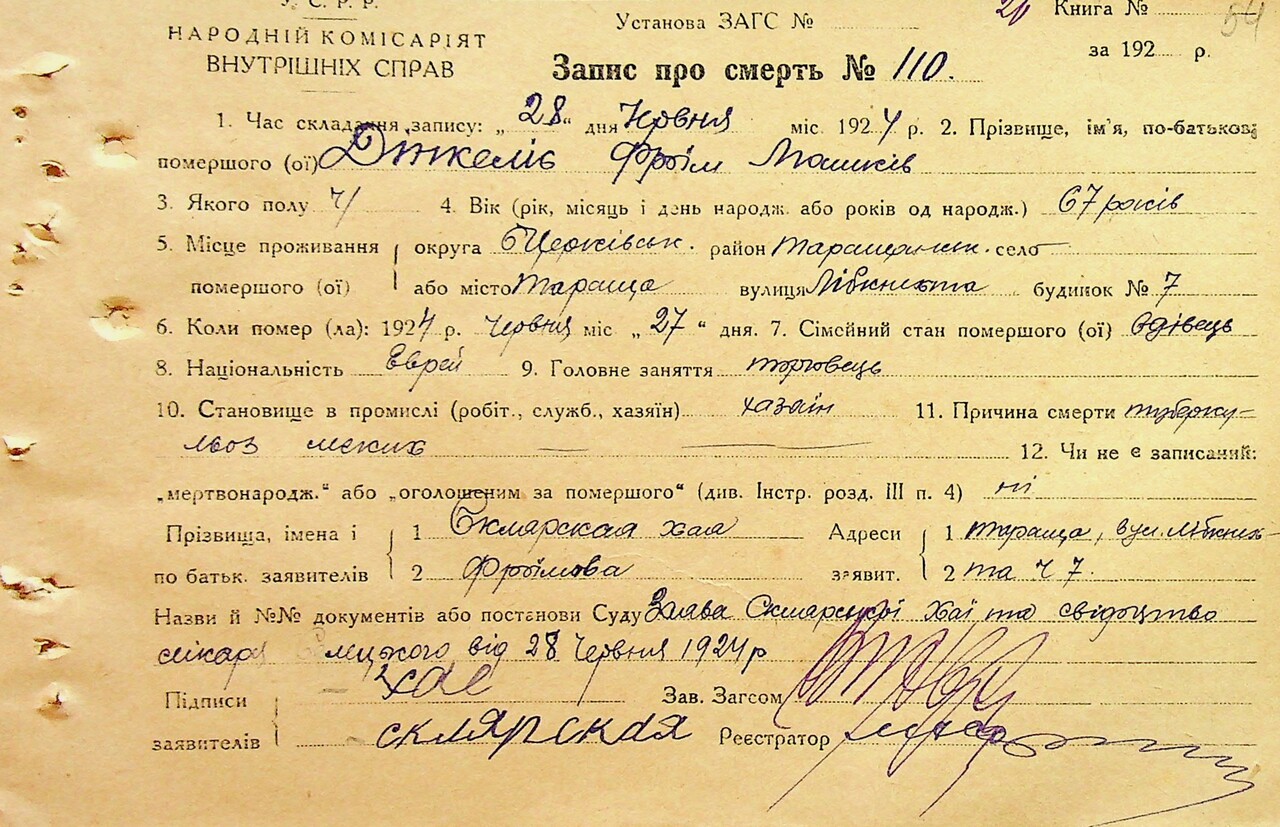 У. С. Р. Р.
НАРОДНІЙ КОМІСАРІЯТ
ВНУТРІШНІХ СПРАВ
Установа ЗАГС №
Книга № 54
за 192 р.
Запис про смерть № 110.
1. Час складання запису: „28“ дня Червня міс 1924 р. 2. Прізвище, ім'я, по-батькові
помершого (ої) Фроїм Мошків
3. Якого полу ч/ 4. Вік (рік, місяць і день народж. або років од народж.) 67 років
5. Місце проживання округа БЦерківськ. район Таращанськ. село
помершого (ої) або місто Тараща вулиця Лібкнехта будинок № 7
6. Коли помер (ла): 1924 р. Червня міс „27“ дня. 7. Сімейний стан помершого (ої) вдівець
8. Національність Еврей 9. Головне заняття торговець
10. Становище в промислі (робіт., служб., хазяїн) хазаїн 11. Причина смерти туберку-
льоз легких 12. Чи не є записаний:
„мертвонародж.“ або „оголошеним за помершого“ (див. Інстр. розд. III п. 4) ні
Прізвища, імена і 1 Склярская Хая Адреси 1 Тараща, вул. Лібкнех-
по батьк. заявителів 2 Фроїмова заявит. 2 та ч 7.
Назви й №№ документів або постанови Суду Заява Склярської Хаї та свідоцтво
лікаря від 28 Червня 1924 р
Підписи Хае Зав. Загсом
заявителів склярская Реєстратор